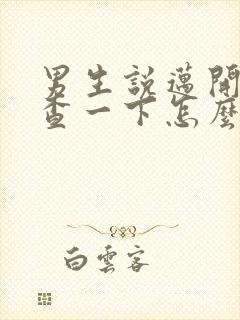 男生說邁開
查一下怎麼
白雲客